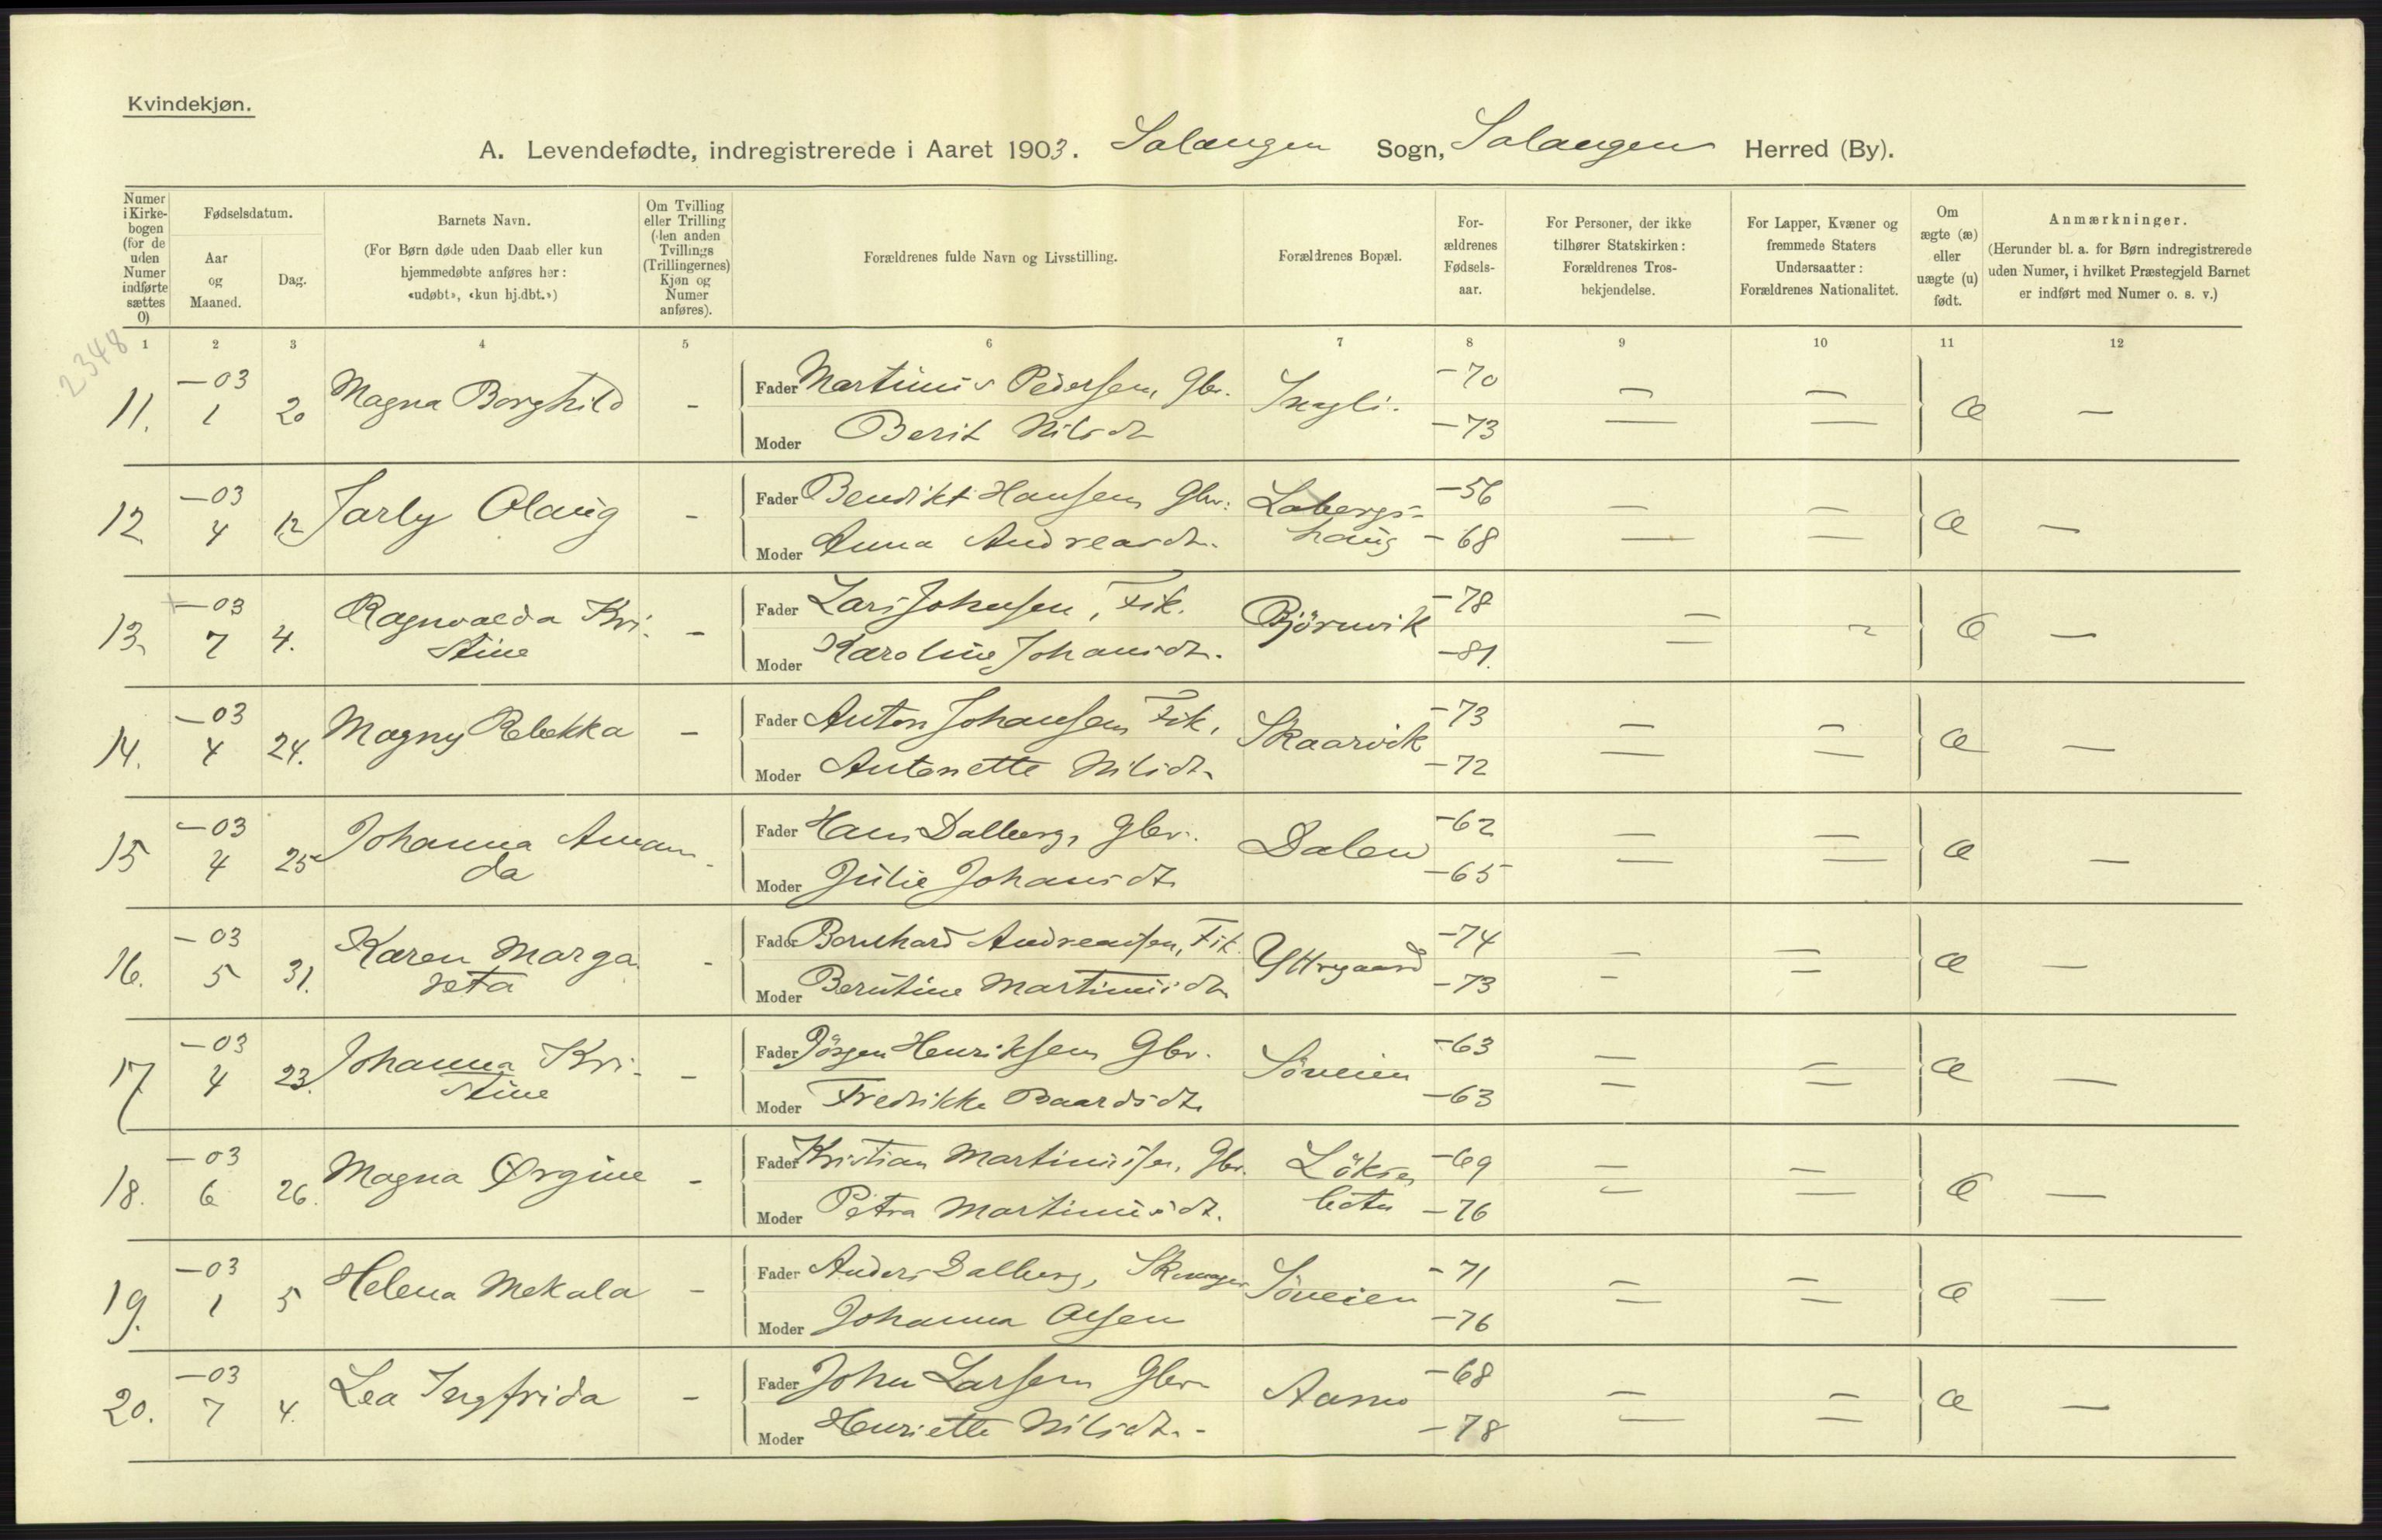 Kvindekjøn.
A. Levendefødte, indregistrerede i Aaret 1903. Salangen Sogn, Salangen Herred (By).
Numer i Kirkebogen (for de uden Numer indførte sættes 0)
Fødselsdatum.
Aar og Maaned.
Dag.
Barnets Navn.
(For Børn døde uden Daab eller kun hjemmedøbte anføres her: «udøbt», «kun hj.dbt.»)
Om Tvilling eller Trilling (den anden Tvillings (Trillingernes) Kjøn og Numer anføres).
Forældrenes fulde Navn og Livsstilling.
Forældrenes Bopæl.
Forældrenes Fødselsaar.
For Personer, der ikke tilhører Statskirken: Forældrenes Trosbekjendelse.
For Lapper, Kvæner og fremmede Staters Undersaatter: Forældrenes Nationalitet.
Om ægte (æ) eller uægte (u) født.
Anmærkninger.
(Herunder bl. a. for Børn indregistrerede uden Numer, i hvilket Præstegjeld Barnet er indført med Numer o. s. v.)
2348
1 2 3 4 5 6 7 8 9 10 11 12
11. —03 1 20 Magna Borghild - Fader Martinus Pedersen, Gbr. -70 æ —
Moder Berit Nilsdt. -73
12 —03 4 12 Jarly Olaug - Fader Benedikt Hansen Gbr. Labergs- -56 æ —
Moder Anna Andreasdt. haug -68
13. —03 7 4. Ragnvalda Kri- - Fader Lars Johnsen, Fik. Björnvik -78 æ —
stine Moder Karoline Johansdt. -81.
14. —03 4 24. Magny Rebekka - Fader Anton Johansen Fik. Skaarvik -73 æ —
Moder Antonette Nilsdt. -72
15 —03 4 25 Johanna Aman- Fader Hans Dalberg, Gbr. Dalen -62 æ —
da Moder Julie Johansdt. -65
16. —03 5 31. Karen Marga- - Fader Bernhard Andreassen, Fik. Yttregaard -74 æ —
reta Moder Berntine Martinusdt. -73
17 —03 4 23. Johanna Kri- - Fader Jörgen Henriksen Gbr. Söveien -63 æ —
stine Moder Fredrikke Baardsdt. -63
18. —03 6 26. Magna Ørgine - Fader Kristian Martinussen, Gbr. Lökse- -69 æ —
Moder Petra Martinusdt. botn -76
19. —03 1 5 Helena Mekala - Fader Anders Dalberg, Skomager Söveien -71 æ —
Moder Johanna Olsen -76
20. —03 7 4. Lea Ingfrida - Fader John Larsen Gbr. -68 æ —
Moder Henriette Nilsdt. -78